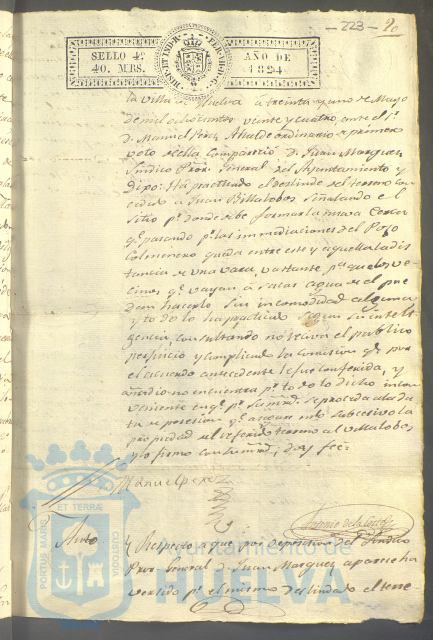 -223- 9.
SELLO 4º
40. MRS.
AÑO DE
1824
la villa de Huelva a treinta y uno de Mayo
de mil ochocientos veinte y cuatro, ante el Sr.
D. Manuel Perez Alcalde ordinario de primer
voto de ella Comparecio D. Juan Marquez
Sindico Pror. General del Ayuntamiento y
Dijo: Ha practicado el deslinde del terreno con
cedido a Juan Billalobos Señalando el
Sitio pr. donde debe formar la nueva Cerca
qe. pasando pr. las inmediaciones del Pozo
Colmenero queda entre este y aquella la dis
tancia de una vara, bastante pa. que los ve
cinos qe. vayan a sacar agua de el pue
dan hacerlo sin incomodidad alguna
y todo lo ha practicado segun su inteli
gencia, consultando no reciva el publico
perjuicio y cumpliendo la comision qe. por
el acuerdo antecedente le fue conferida, y
añadio no encuentra pr. todo lo dicho incon
veniente en qe. pr. su mrd. se proceda a la da
ta de posesion qe. asegure en lo subcesivo la
propiedad del referido terreno al Villalobos
y lo firmo con su mrd.; doy fee =
Manuel Perez
Antonio de la Corte
Auto
Respecto a que por deposicion del Sindico
Pror. General D. Juan Marquez aparece ha
verido pr. el mismo deslindado el terre
PORTUS MARIS ET TERRAE CUSTODIA
Ayuntamiento de
HUELVA